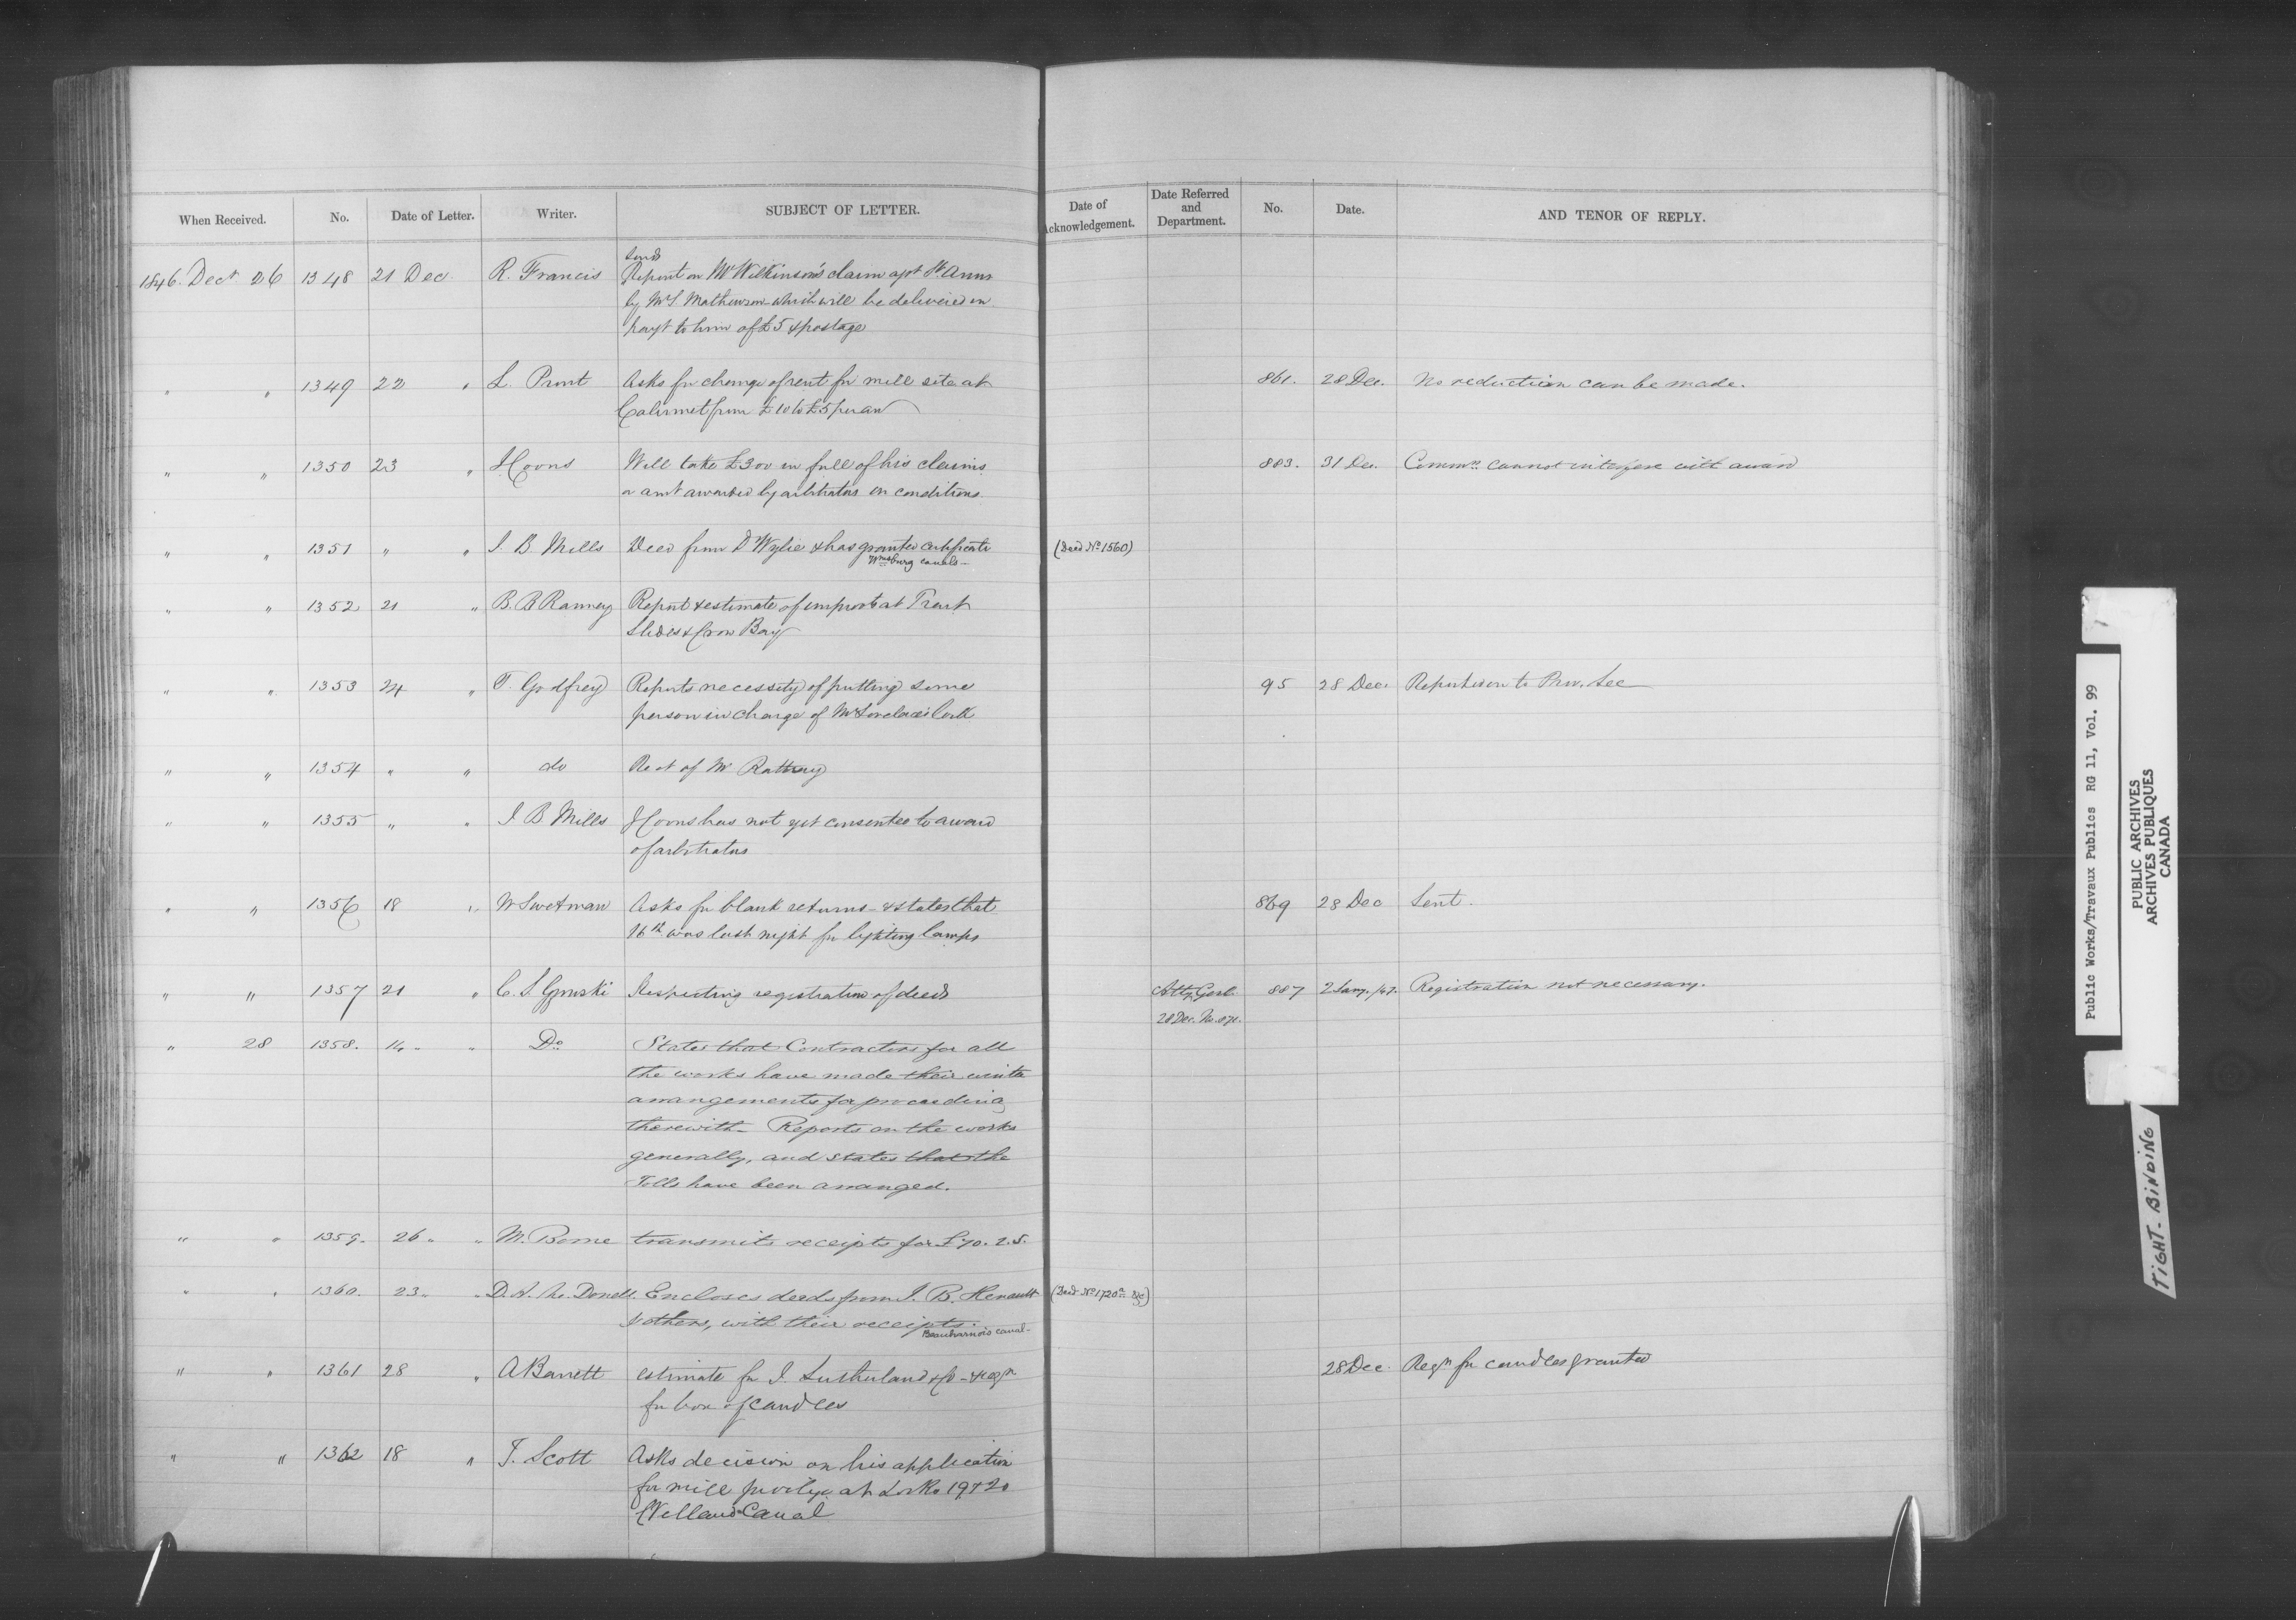 When Received. No. Date of Letter. Writer. SUBJECT OF LETTER. Date of Acknowledgement. Date Referred and Department. No. Date. AND TENOR OF REPLY.
1846. Decr 26 1348 21 Dec R. Francis Sends
Report on Mr Wilkinson's claim agst St Anns
by Mr S. Mathewson which will be delivered on
payt to him of £5 & postage
" " 1349 22 " L. Asks for change of rent for mill site at 861. 28 Dec. No reduction can be made.
Calumet from £10 to £5 per an
" " 1350 23 " J Coons Will take £300 in full of his claims 883. 31 Dec. Commrs cannot interfere with award
or amt awarded by arbitrators on conditions.
" " 1351 " " J. B. Mills Deed from D Wylie & has granted certificate (Deed No 1560)
Wmsburg canals
" " 1352 21 " B. B Ranney Report & estimate of improvts at Trent
Slides & Crow Bay
" " 1353 24 " T. Godfrey Reports necessity of putting some 95 28 Dec. Report thereon to Prov. Sec
person in charge of Mr Lovelace's
" " 1354 " " do Rect of Mr Rattray
" " 1355 " " J B Mills J Coons has not yet consented to award
of arbitrators
" " 1356 18 " W Swetman Asks for blank returns - & states that 869 28 Dec Sent.
16th was last night for lighting lamps
" " 1357 21 " C. S. Gzowski Respecting registration of deeds Atty Genl. 887 2 Jany. /47. Registration not necessary.
28 Dec. No. 871.
" 28 1358. 14 " " Do States that Contractors for all
the works have made their winter
arrangements for proceeding
therewith - Reports on the works
generally, and states that the
Tolls have been arranged.
" " 1359. 26 " " M. Borne transmits receipts for £70. 2. 5.
" " 1360. 23 " " D. A. Mc Donell. Encloses deeds from J. B. Henault (Deed No 1720a &c)
& others, with their receipts.
Beauharnois canal -
" " 1361 28 " A Barrett estimate for J. Sutherland & Co - & reqn 28 Dec. Reqn for candles granted
for box of candles
" " 1362 18 " J. Scott Asks decision on his application
for mill privilge at Locks 19 & 20
Welland Canal
Public Works/Travaux Publics RG 11, Vol. 99
PUBLIC ARCHIVES
ARCHIVES PUBLIQUES
CANADA
TIGHT-BINDING